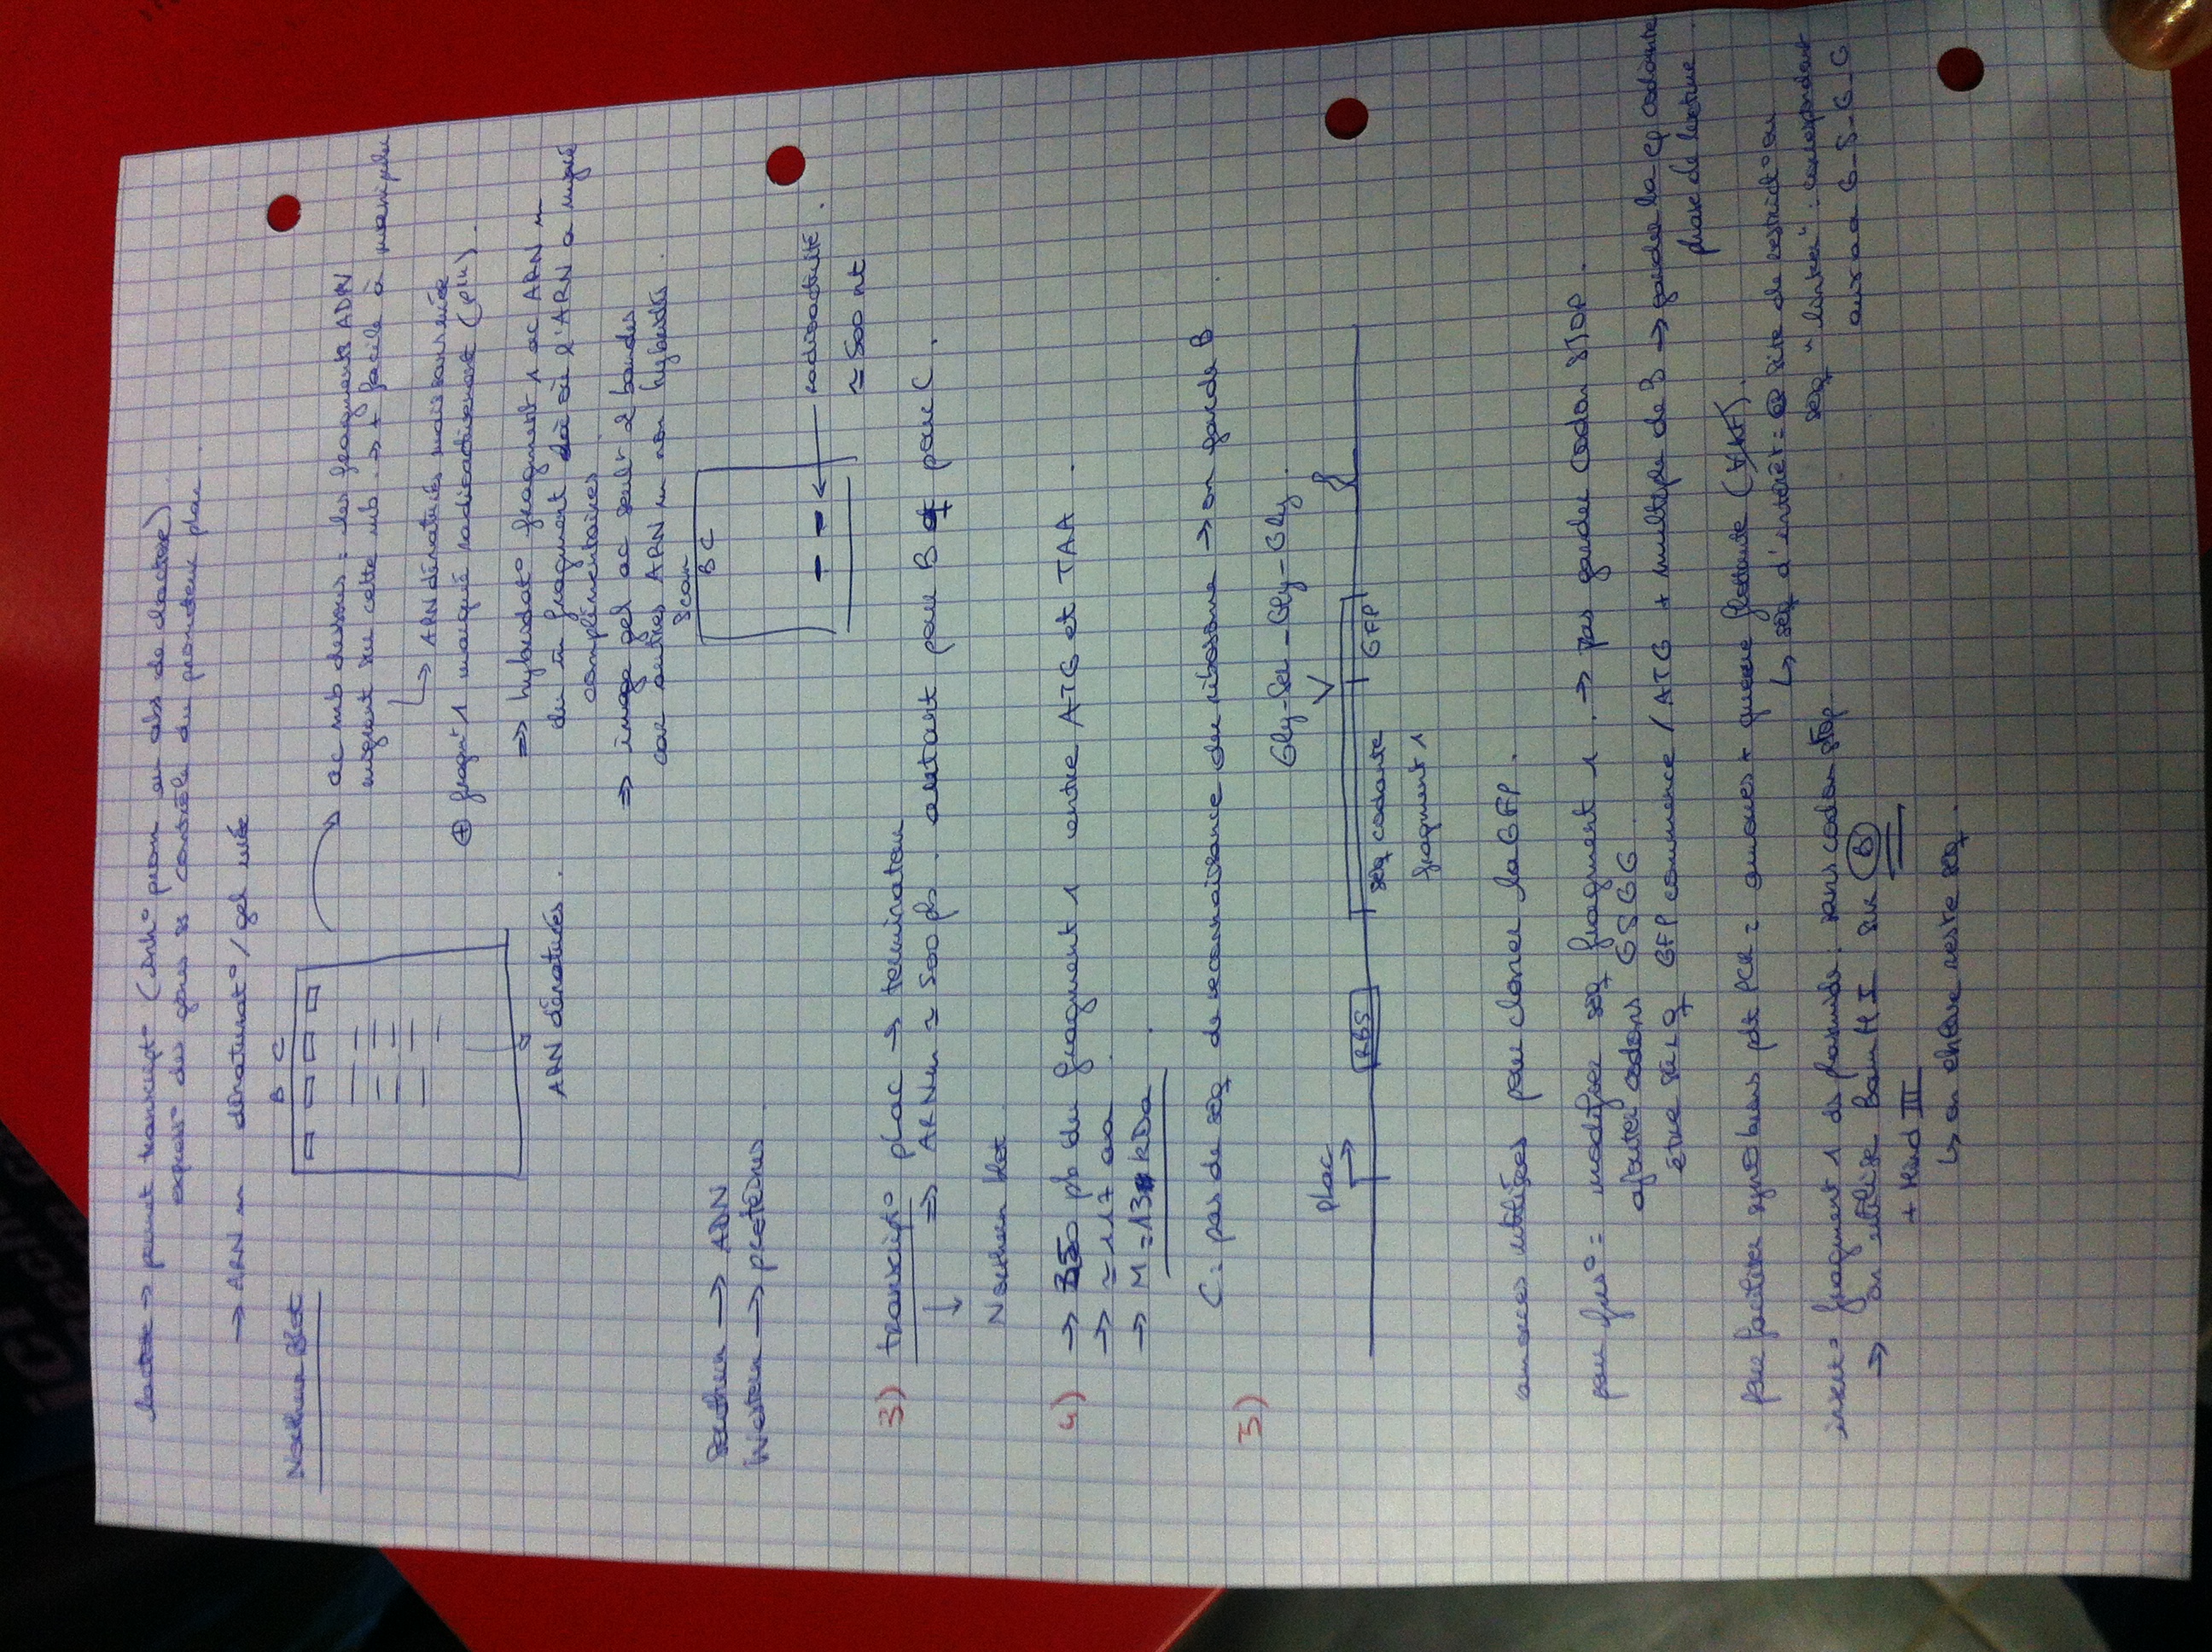 lactose → permet transcript° (inh° prom en abs de lactose)
express° des gènes ss contrôle du promoteur plac.
→ ARNm dénaturat°/gel urée
Northern Blot
B C
ac mb dessous : les fragments ADN
migrent sur cette mb → + facile à manipuler
↳ ARN dénaturés mais sans urée
⊕ fragmt 1 marqué radioactivement
ARN dénaturés.
⇒ hybridat° fragment 1 ac ARNm
du m̂ fragment là où l'ARN a migré
complémentaires.
⇒ image gel ac seulᵗ 2 bandes
car autres ARNm non hybridés.
Scan
B C
Southern → ADN
Western → protéines
radioactivité.
≃ 500 nt
3) transcript° plac → terminateur
⇒ ARNm ≃ 500 pb. autant pour B q pour C.
↓
Northern blot
4) → 350 pb du fragment 1 entre ATG et TAA.
→ ≃ 117 aa.
→ M = 13 kDa.
C : pas de séq de reconnaissance du ribosome → on garde B.
5)
Gly-Ser-Gly-Gly.
plac
RBS
séq codante
GFP
fragment 1
amorces utilisées pour cloner la GFP.
pour fus° = modifier séq fragment 1. → pas garder codon STOP.
ajouter codons GSGG.
être sûr q GFP commence / ATG + multiple de 3 → garder la codante
phase de lecture.
pour faciliter pdt PCR = amorces + queue flottante
↳ séq d'intérêt = site de restrict° ou
séq "linker" : correspondant
aux aa G-S-G-G
insert° fragment 1 ds plasmide : sans codon stop
→ on utilise Bam H I sur B
+ Hind III
↳ on enlève reste séq.